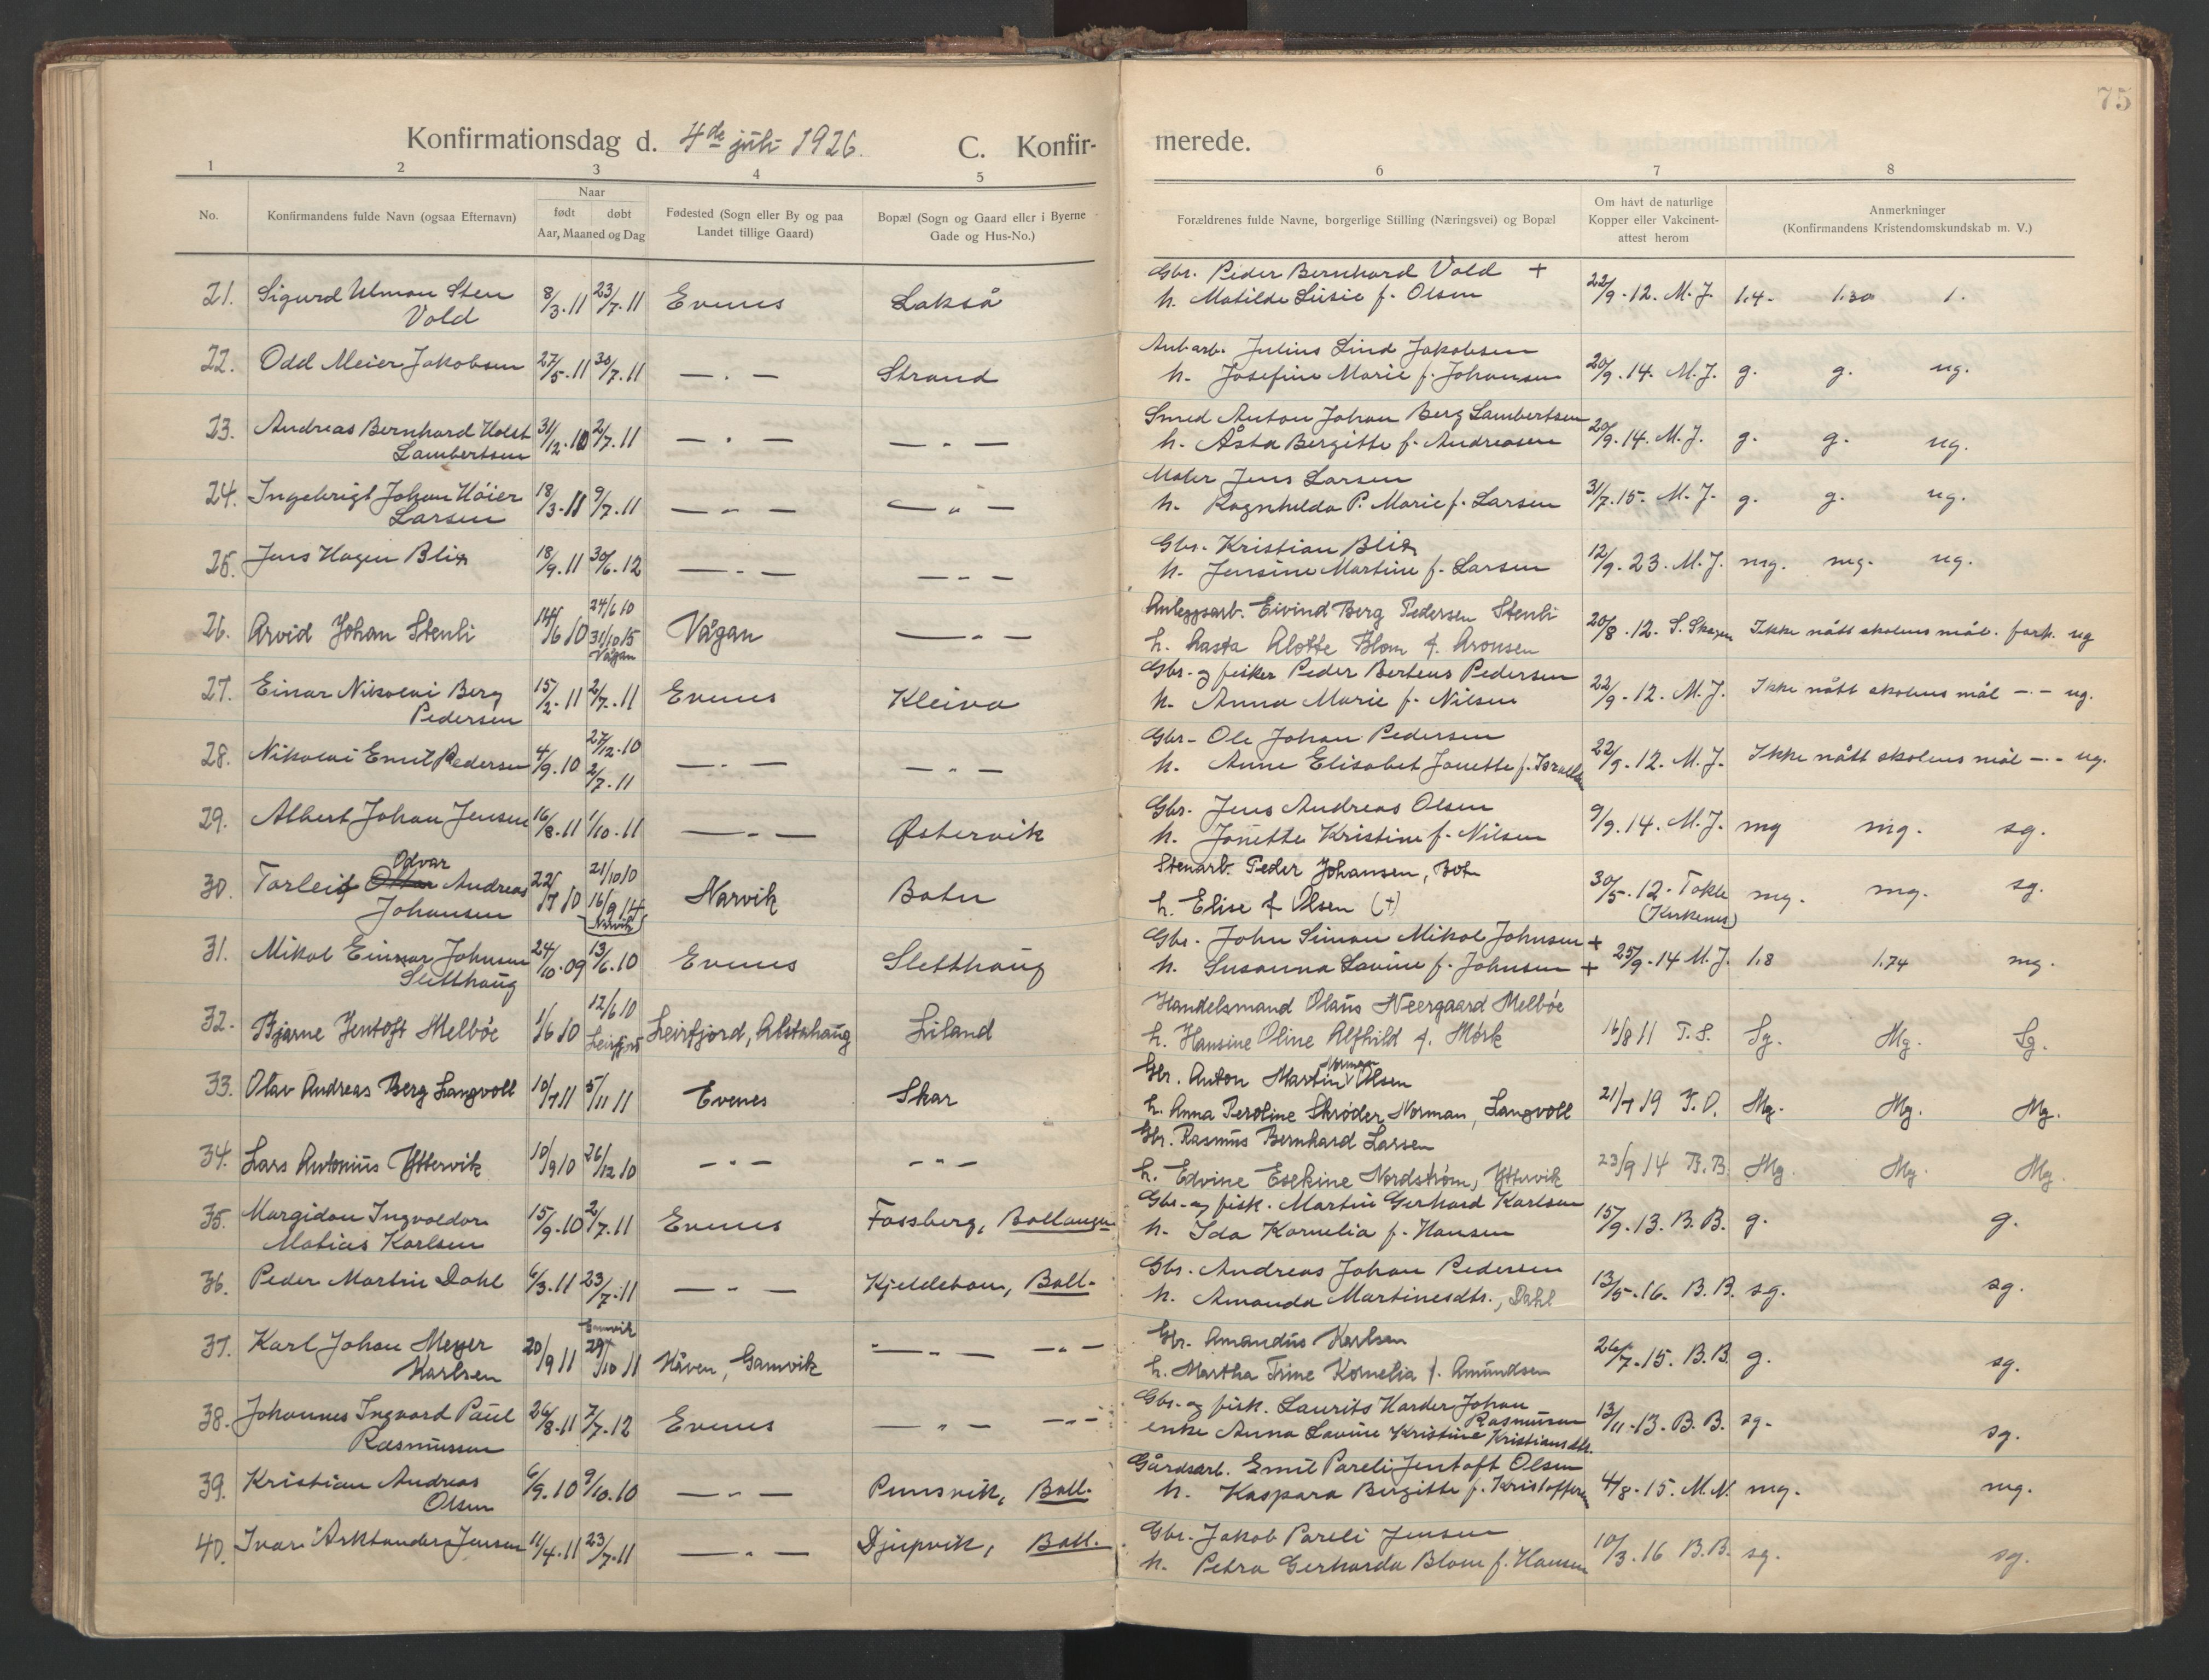 75
Konfirmationsdag d. 4de juli 1926. C. Konfir-
merede.
1 2 3 4 5
6 7 8
No.
Konfirmandens fulde Navn (ogsaa Efternavn)
Naar
født døbt
Aar, Maaned og Dag
Fødested (Sogn eller By og paa
Landet tillige Gaard)
Bopæl (Sogn og Gaard eller i Byerne
Gade og Hus-No.)
Forældrenes fulde Navne, borgerlige Stilling (Næringsvei) og Bopæl
Om havt de naturlige
Kopper eller Vakcinent-
attest herom
Anmerkninger
(Konfirmandens Kristendomskundskab m. V.)
21. Sigurd Ulman Sten
Vold
8/3.11 23/7.11 Evenes Lakså
Gbr. Peder Bernhard Vold +
h. Matilde Lusie f. Olsen
22/9.12. M. J. 1.4. 1.30 1.
22. Odd Meier Jakobsen 27/5.11 30/7.11 — . — Strand
Anl.arb. Julius Lind Jakobsen
h. Josefine Marie f. Johansen
20/9.14. M. J. g. g. ug.
23. Andreas Bernhard Holst
Lambertsen
31/12.10 2/7.11 — . — — . —
Smed Anton Johan Berg Lambertsen
h. Åsta Bergitte f. Andreasen
20/9.14. M. J. g. g. ug.
24. Ingebrigt Johan Høier
Larsen
18/3.11 9/7.11 — " — — " —
Maler Jens Larsen
h. Ragnhilda P. Marie f. Larsen
31/7.15. M. J. g. g. ug.
25. Jens Hagen Blix 18/9.11 30/6.12 — . — — . —
Gbr. Kristian Blix
h. Jensine Martine f. Larsen
12/9.23. M. J. mg. mg. ug.
26. Arvid Johan Stenli 14/6 10
24/6 10
31/10 15
Vågan
Vågan — . —
Anleggsarb. Eivind Berg Pedersen Stenli
h. Aasta Alotte Blom f. Aronsen
20/8.12. S. Skagen Ikke nått skolens mål. fork. ug
27. Einar Nikolai Berg
Pedersen
15/2.11 2/7.11 Evenes Kleiva
Gbr. og fisker Peder Berteus Pedersen
h. Anna Marie f. Nilsen
22/9.12. M. J. Ikke nått skolens mål — . — ug.
28. Nikolai Emil Pedersen 4/9.10
27/12.10
2/7.11
— . — — " —
Gbr. Ole Johan Pedersen
h. Anne Elisabet Jonette f. Israelsen
22/9.12. M. J. Ikke nått skolens mål — . — ug.
29. Albert Johan Jensen 16/8.11 1/10.11 — . — Østervik
Gbr. Jens Andreas Olsen
h. Jonette Kristine f. Nilsen
9/9.14. M. J. mg mg. sg.
Odvar
30. Torleif Ottar Andreas
Johansen
22/7 10
21/10 10
16/9 14
Narvik
Narvik Botn
Stenarb. Peder Johansen, Botn
h. Elise f Olsen (+)
30/5.12. Tokle
(Kirkenes)
mg. mg. sg.
31. Mikal Einar Johnsen
Sletthaug
24/10.09 13/6.10 Evenes Sletthaug
Gbr. John Simon Mikal Johnsen +
h. Susanna Lavine f. Johnsen +
25/9.14 M. J. 1.8 1.74 mg.
32. Bjarne Jentoft Melbøe 1/6 10
12/6 10
Leirfjord
Leirfjord, Alstahaug Liland
Handelsmand Olaus Neergaard Melbøe
h. Hansine Oline Alfhild f. Mørk
16/8 11 T. S. Sg. Mg. Sg.
33. Olav Andreas Berg Langvoll 10/7 11 5/11 11 Evenes Skar
Norman
Gbr. Anton Martin Olsen
h. Anna Peroline Skrøder Norman, Langvoll
21/7 19 T. O. Mg. Mg. Mg.
34. Lars Antonius Yttervik 10/9 10 26/12 10 — " — — " —
Gbr. Rasmus Bernhard Larsen
h. Edvine Esekine Nordstrøm, Yttervik
23/9 14 B. B. Mg. Mg. Mg.
35. Margidon Ingvaldor
Matias Karlsen
15/9.10 2/7.11 Evenes Fossberg, Ballangen
Gbr. og fisk. Martin Gerhard Karlsen
h. Ida Kornelia f. Hansen
15/9.13. B. B. g. g.
36. Peder Martin Dahl 6/3.11 23/7.11 — " — Kjeldebotn, Ball.
Gbr. Andreas Johan Pedersen
h. Amanda Martinesdtr., Dahl
13/5.16. B. B. sg. sg.
37. Karl Johan Meyer
Karlsen
20/9 11
Gamvik
29/10 11
Håven, Gamvik — . — — . —
Gbr. Amandus Karlsen
h. Martha Trine Kornelia f. Amundsen
26/7.15. B. B. g. sg.
38. Johannes Ingvard Paul
Rasmussen
26/8.11 7/7.12 Evenes — " — — . —
Gbr. og fisk. Laurits Harder Johan
Rasmussen
enke Anna Lavine Kristine Kristiansdtr.
13/11.13. B. B. sg. sg.
39. Kristian Andreas
Olsen
6/9.10 9/10.10 — " — Punsvik, Ball.
Gårdsarb. Emil Pareli Jentoft Olsen
h. Kaspara Bergitte f. Kristoffersen
4/8.15. M. N. mg. mg.
40. Ivar Arktander Jensen 11/4.11 23/7.11 — . — Djupvik, Ball.
Gbr. Jakob Pareli Jensen
h. Petra Gerharda Blom f. Hansen
10/3.16 B. B. sg. sg.